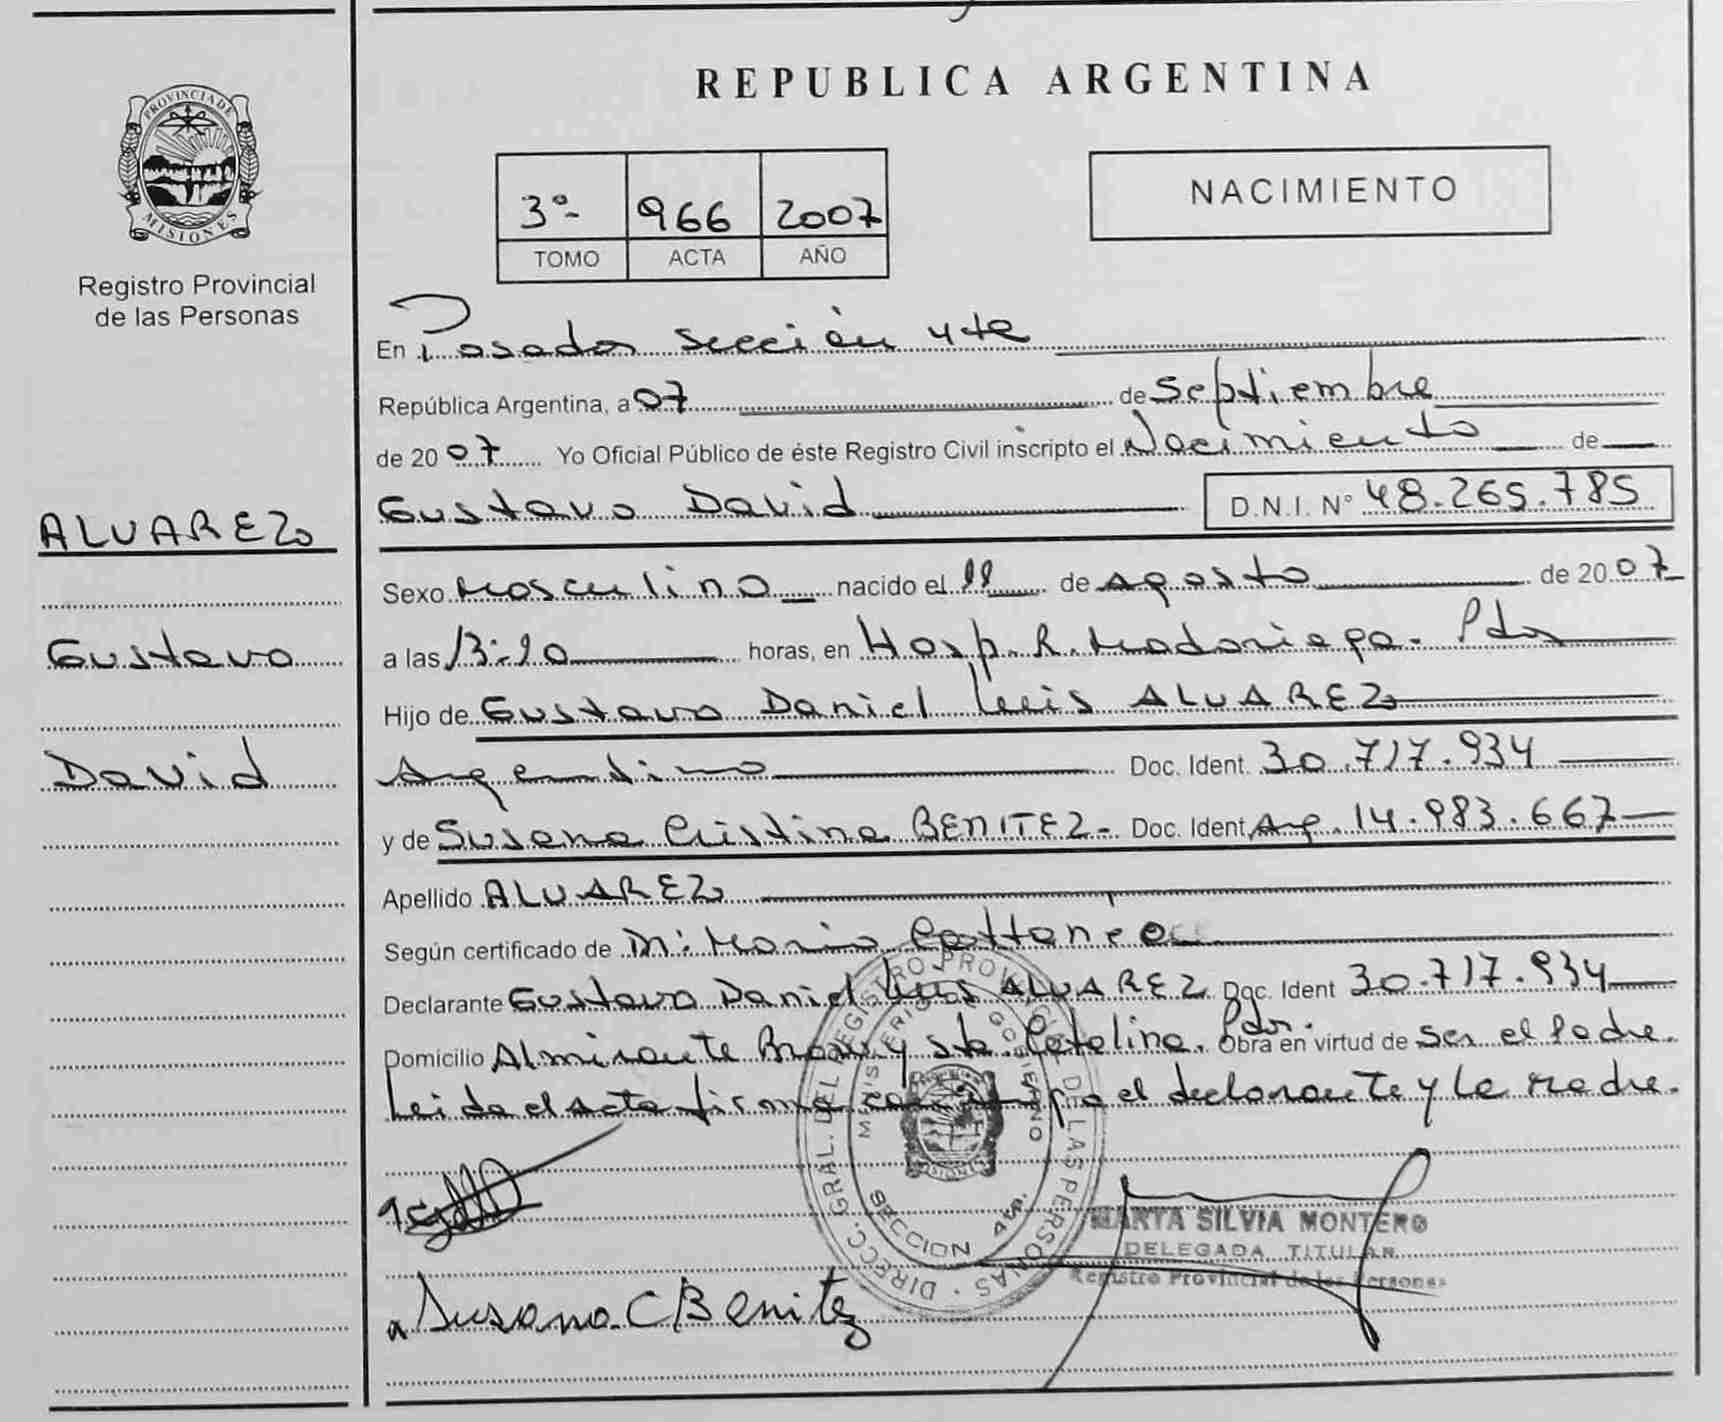 REPUBLICA ARGENTINA
PROVINCIA DE
MISIONES
Registro Provincial
de las Personas
3º- 966 2007
TOMO ACTA AÑO
NACIMIENTO
En Posadas sección 4ta
República Argentina, a 07 de Septiembre
de 2007 Yo Oficial Público de éste Registro Civil inscripto el Nacimiento de
Gustavo David D.N.I. Nº 48.265.785
ALVAREZ
Gustavo
David
Sexo Masculino nacido el 11 de Agosto de 2007
a las 13:10 horas, en Hosp. R. Madariaga. Pdas
Hijo de Gustavo Daniel Luis ALVAREZ
Argentino Doc. Ident. 30.717.934
y de Susana Cristina BENITEZ- Doc. Ident. Arg. 14.983.667
Apellido ALVAREZ
Según certificado de Dr: Mario Cattaneo
Declarante Gustavo Daniel Luis ALVAREZ Doc. Ident 30.717.934
Domicilio Almirante Brown y Sta. Catalina. Pdas. Obra en virtud de ser el Padre.
Leida el acta firma conmigo el declarante y la Madre.
DIRECC. GRAL. DEL REGISTRO PROVINCIAL DE LAS PERSONAS
MINISTERIO GOBIERNO
SECCION 4ta.
MISIONES
MARTA SILVIA MONTERO
DELEGADA TITULAR
Registro Provincial de las Personas
Susana C Benitez